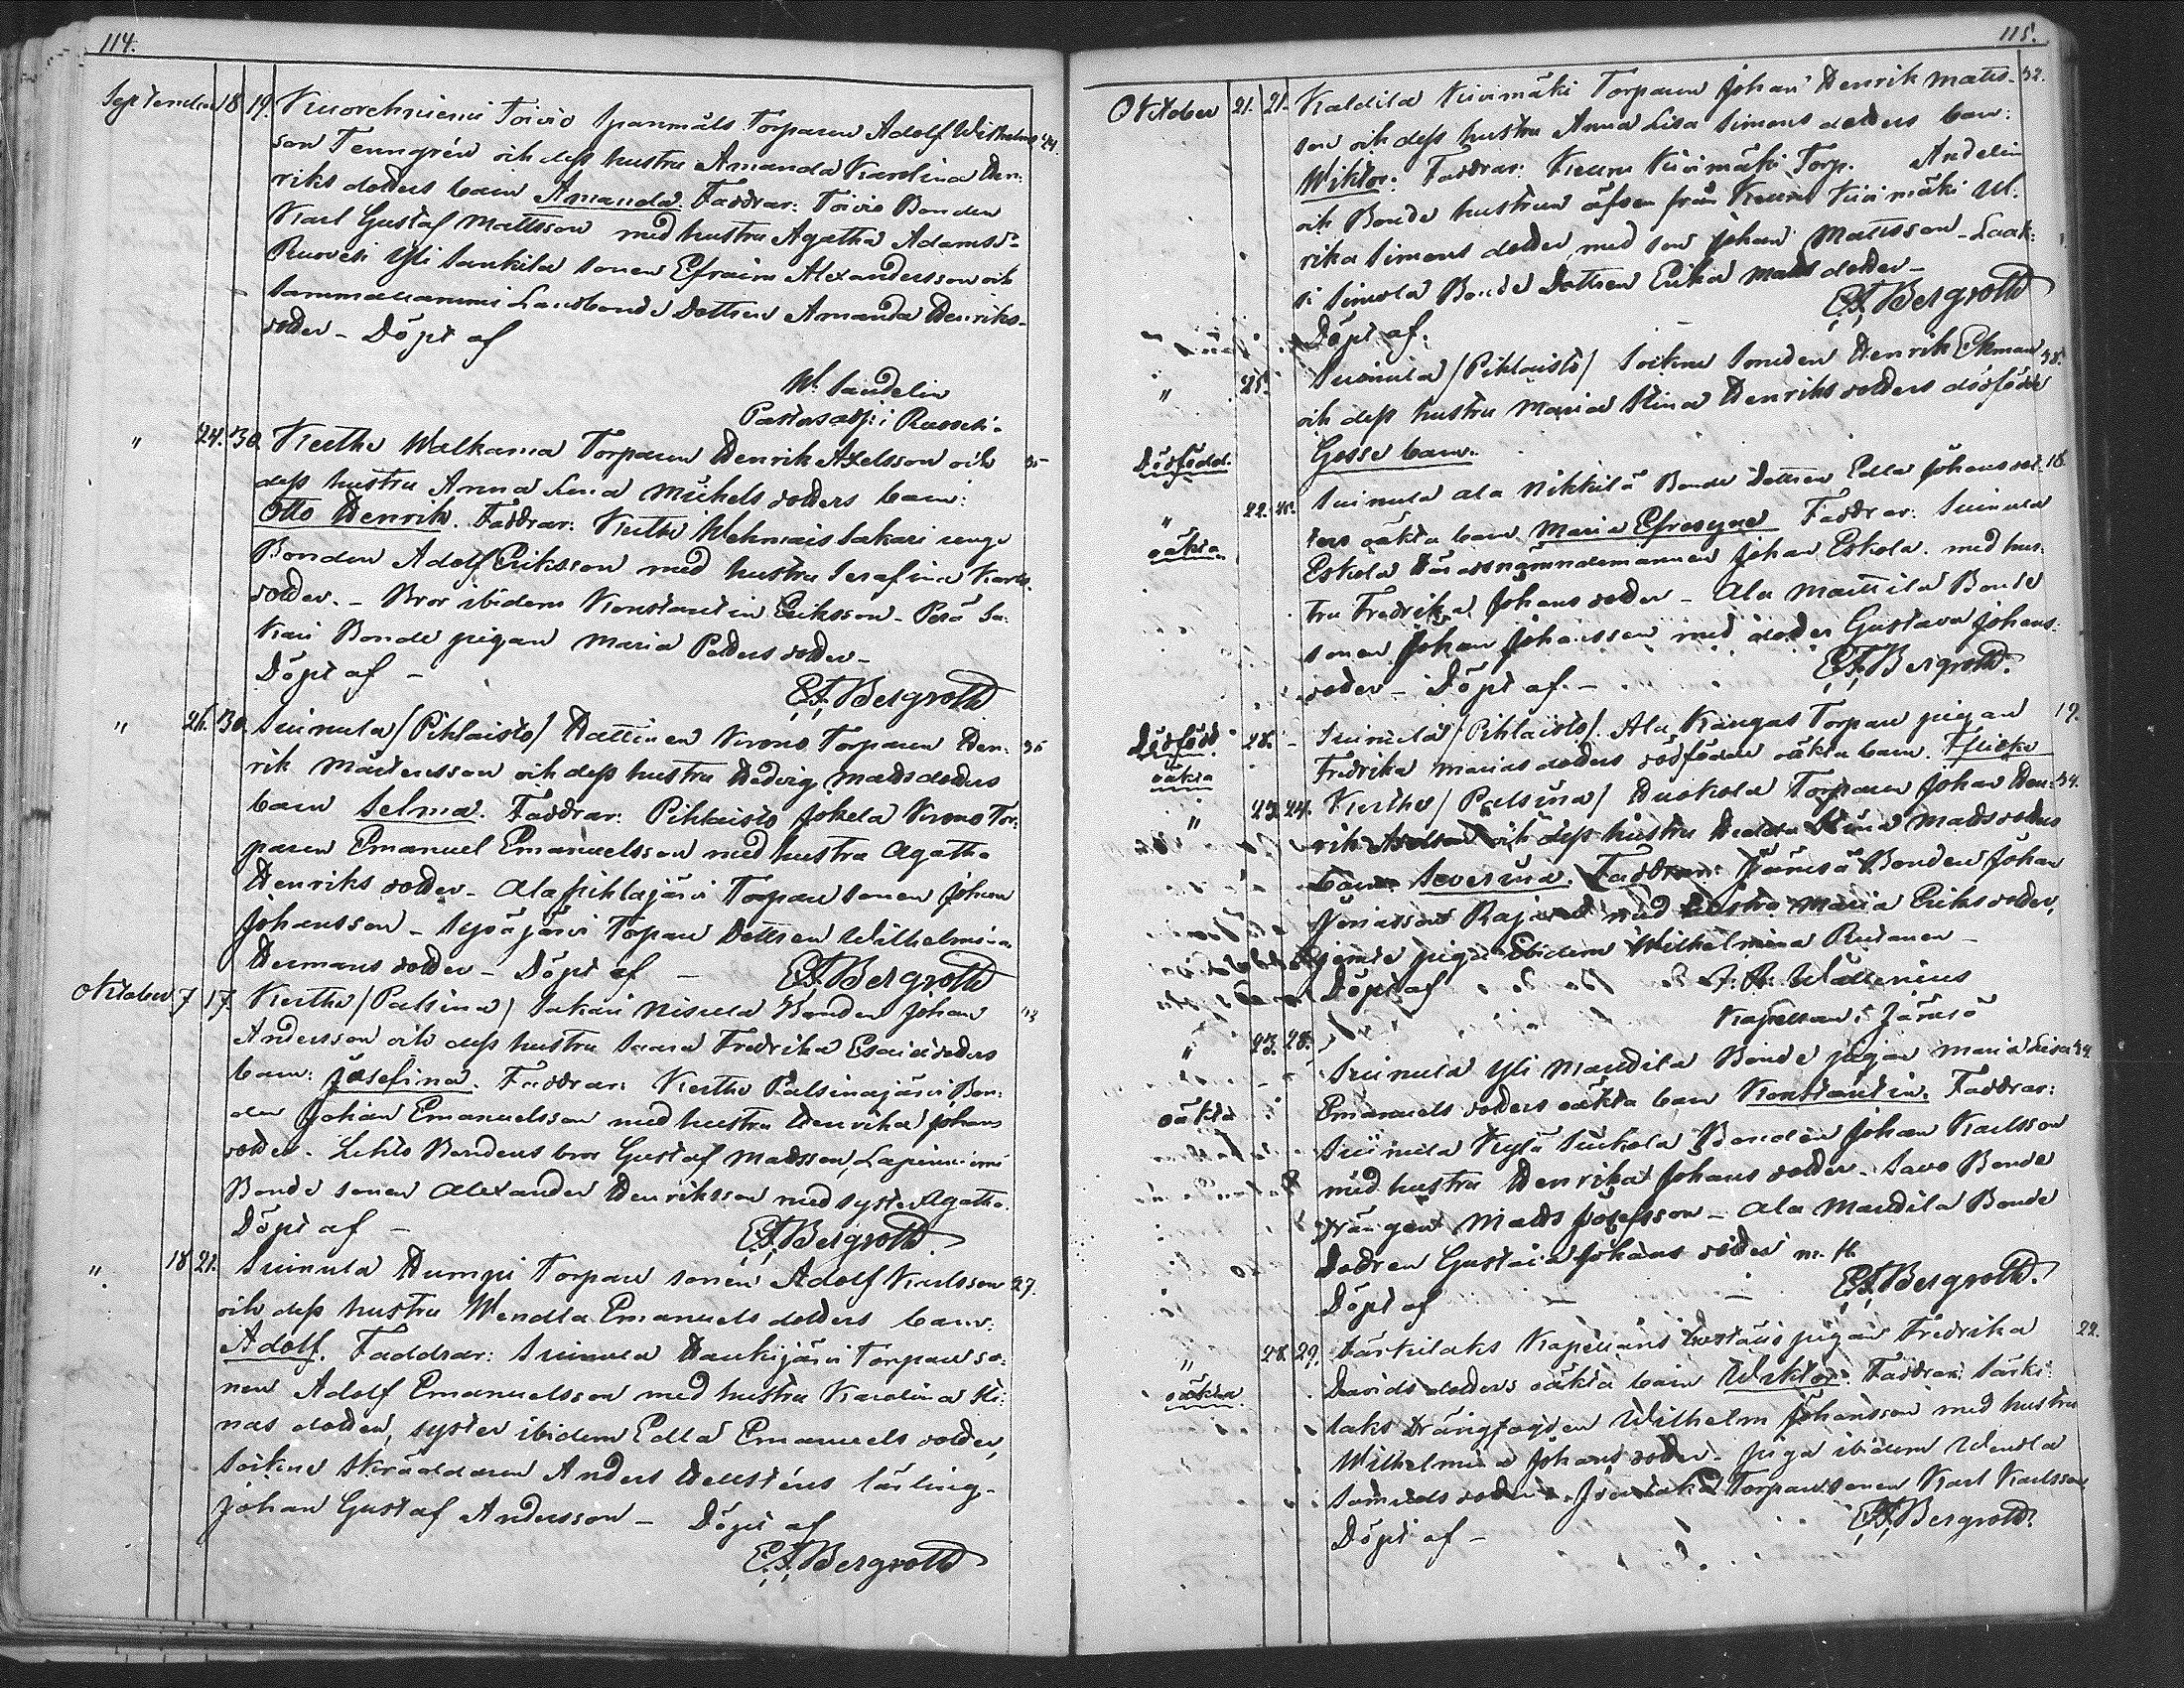 114.
September 18 19. Kuorehniemi Toivio Spanmåls Torparen Adolf Wilhelms 44.
son Tenngrén och dess hustru Amanda Karolina Hen-
riks dotters barn Amanda. Faddrar: Toivio Bonden
Karl Gustaf Mattsson med hustru Agatha Adamsdr
Ruovesi Yli Sankila sonen Efraim Alexandersson och
Landbonde Dottren Amanda Henriks-
dotter - Döpt af
W. Sandelin
Pastorsadj: i
" 24. 30. Kertte Walkama Torparen Henrik Axelsson och 35
dess hustru Anna Lena Michels dotters barn:
Otto Henrik. Faddrar: Kertte Wehmais Sakari unge
Bonden Adolf Eriksson med hustru Serafina Karls
dotter. - Bror ibidem Konstantin Eriksson - Perä Sa-
kari Bonde pigan Maria Peders dotter -
Döpt af -
E.F. Bergroth
" 26. 30. Suinula /Pihlaisto/ Hattinen Torparen Hen- 36
rik Mårtensson och dess hustru Hedvig Mattsdotters
barn Selma. Faddrar: Pihlaisto Jokela Tor-
paren Emanuel Emanuelsson med hustru Agatha
Henriks dotter - Ala pihlajärvi Torpare sonen Johan
Johansson - Syväjärvi Torpare Dottren Wilhelmina
Hermans dotter - Döpt af - E.F. Bergroth
Oktober 7 17. Kertte /Palsina/ Sakari Niskala Bonden Johan 43
Andersson och dess hustru Saara Fredrika Esaiædotters
barn: Josefina. Faddrar: Kertte Palsinajärvi Bon-
den Johan Emanuelsson med hustru Henrika Johans
dotter. Lehto Bondens bror Gustaf Mattsson, Lapinniemi
Bonde sonen Alexander Henriksson med syster Agatha.
Döpt af -
E.F. Bergroth.
" 18 21. Suinula Humpi Torpare sonen Adolf Karlsson 27.
och dess hustru Wendla Emanuels dotters barn:
Adolf. Faddrar: Suinula Haukijärvi Torpare so-
nen Adolf Emanuelsson med hustru Karolina Sti-
nas dotter, syster ibidem Edla Emanuels dotter,
Sockne skräddaren Anders Hellsténs lärling -
Johan Gustaf Andersson - Döpt af
E.F. Bergroth
115.
Oktober 21. 21. Kaldila Kivimäki Torparen Johan Henrik Matts- 32.
son och dess hustru Anna Lisa Simons dotters barn:
Wiktor: Faddrar: Keuru Kivimäki Torp. Andelin
och Bonde hustrun äfven från Keuru Kivimäki Ul-
rika Simons dotter, med son Johan Mattsson - Laak-
si Simola Bonde Dottren Erika Matts dotter -
Döpt af. E.F. Bergroth
" 25. Suinula /Pihlaisto/ Sockne smeden Henrik Ekman 38.
och dess hustru Maria Stina Henriks dotters dödfödde
Dödfödd. Gosse barn.
" 22. Suinula ala Nikkilä Bonde Dottren Edla Johans dot- 18.
oäkta ters oäkta barn Maria Efrosyne Faddrar: Suinula
Eskola Häradsnämndemannen Johan Eskola. med hus-
tru Fredrika Johans dotter - Ala Mattila Bonde
sonen Johan Johansson med dotter Gustava Johans-
dotter - Döpt af. - E.F. Bergroth.
Dödfödd. 28. - Suinula /Pihlaisto/. Ala Kangas Torpare pigan 19.
oäkta Fredrika Marias dotters dödfödde oäkta barn. Flicka
" 23 24. Kertte /Palsina/ Torparen Johan Hen- 34.
rik Axelsson och dess hustru Hedda Stina Matts dotters
barn Severina. Faddrar: Jämsä Bonden Johan
med hustru Maria Eriks dotter,
pigan Ibidem Wilhelmina Rutanen -
Döpt af Wallenius
Kapellan i Jämsä
" 23. 28. Suinula Yli Mandila Bonde pigan Maria Lisa 34.
Emanuels dotters oäkta barn Konstantin. Faddrar:
oäkta Suinula Kylä Siukola Bonden Johan Karlsson
med hustru Henrika Johans dotter - Savo Bonde
drängen Matts Josefsson - Ala Mandila Bonde
Dottren Gustava Johans dotter m. fl.
Döpt af - - E.F. Bergroth.
" 28. 29. Särkilaks Kapellans pigan Fredrika 22.
oäkta Davids dotters oäkta barn Wiktor. Faddrar: Särki-
laks Drängfogden Wilhelm Johansson med hustru
Wilhelmina Johans dotter - Piga ibidem Wendla
Samuels dotter - Torpare sonen Karl Karlsson
Döpt af - E.F. Bergroth.